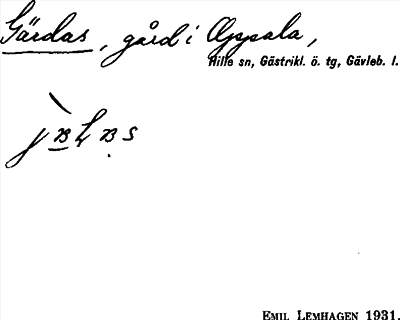 Gärdas, gård i Oppala,
Hille sn, Gästrikl. ö. tg, Gävleb. l.
EMIL LEMHAGEN 1931.